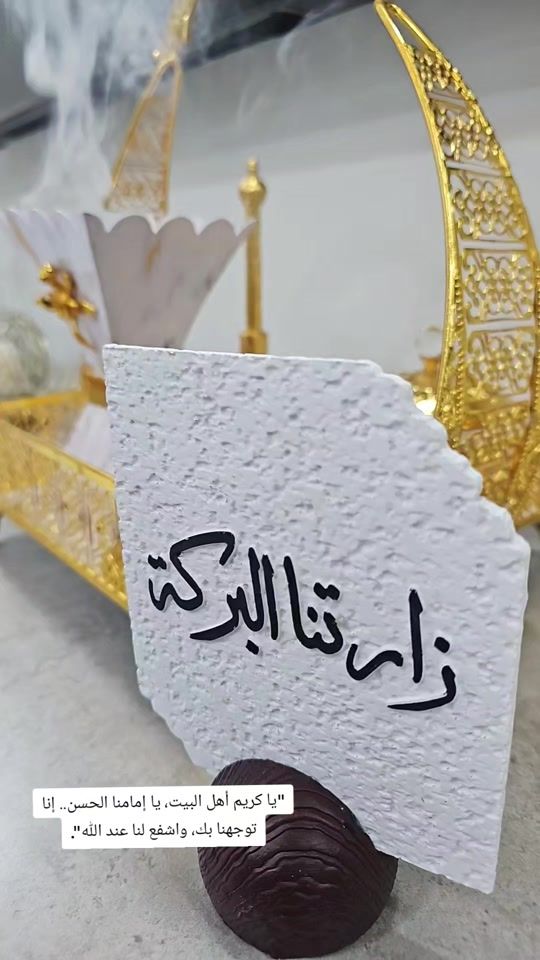 زارتنا البركة
"يا كريم أهل البيت، يا إمامنا الحسن.. إنا
توجهنا بك، واشفع لنا عند الله".